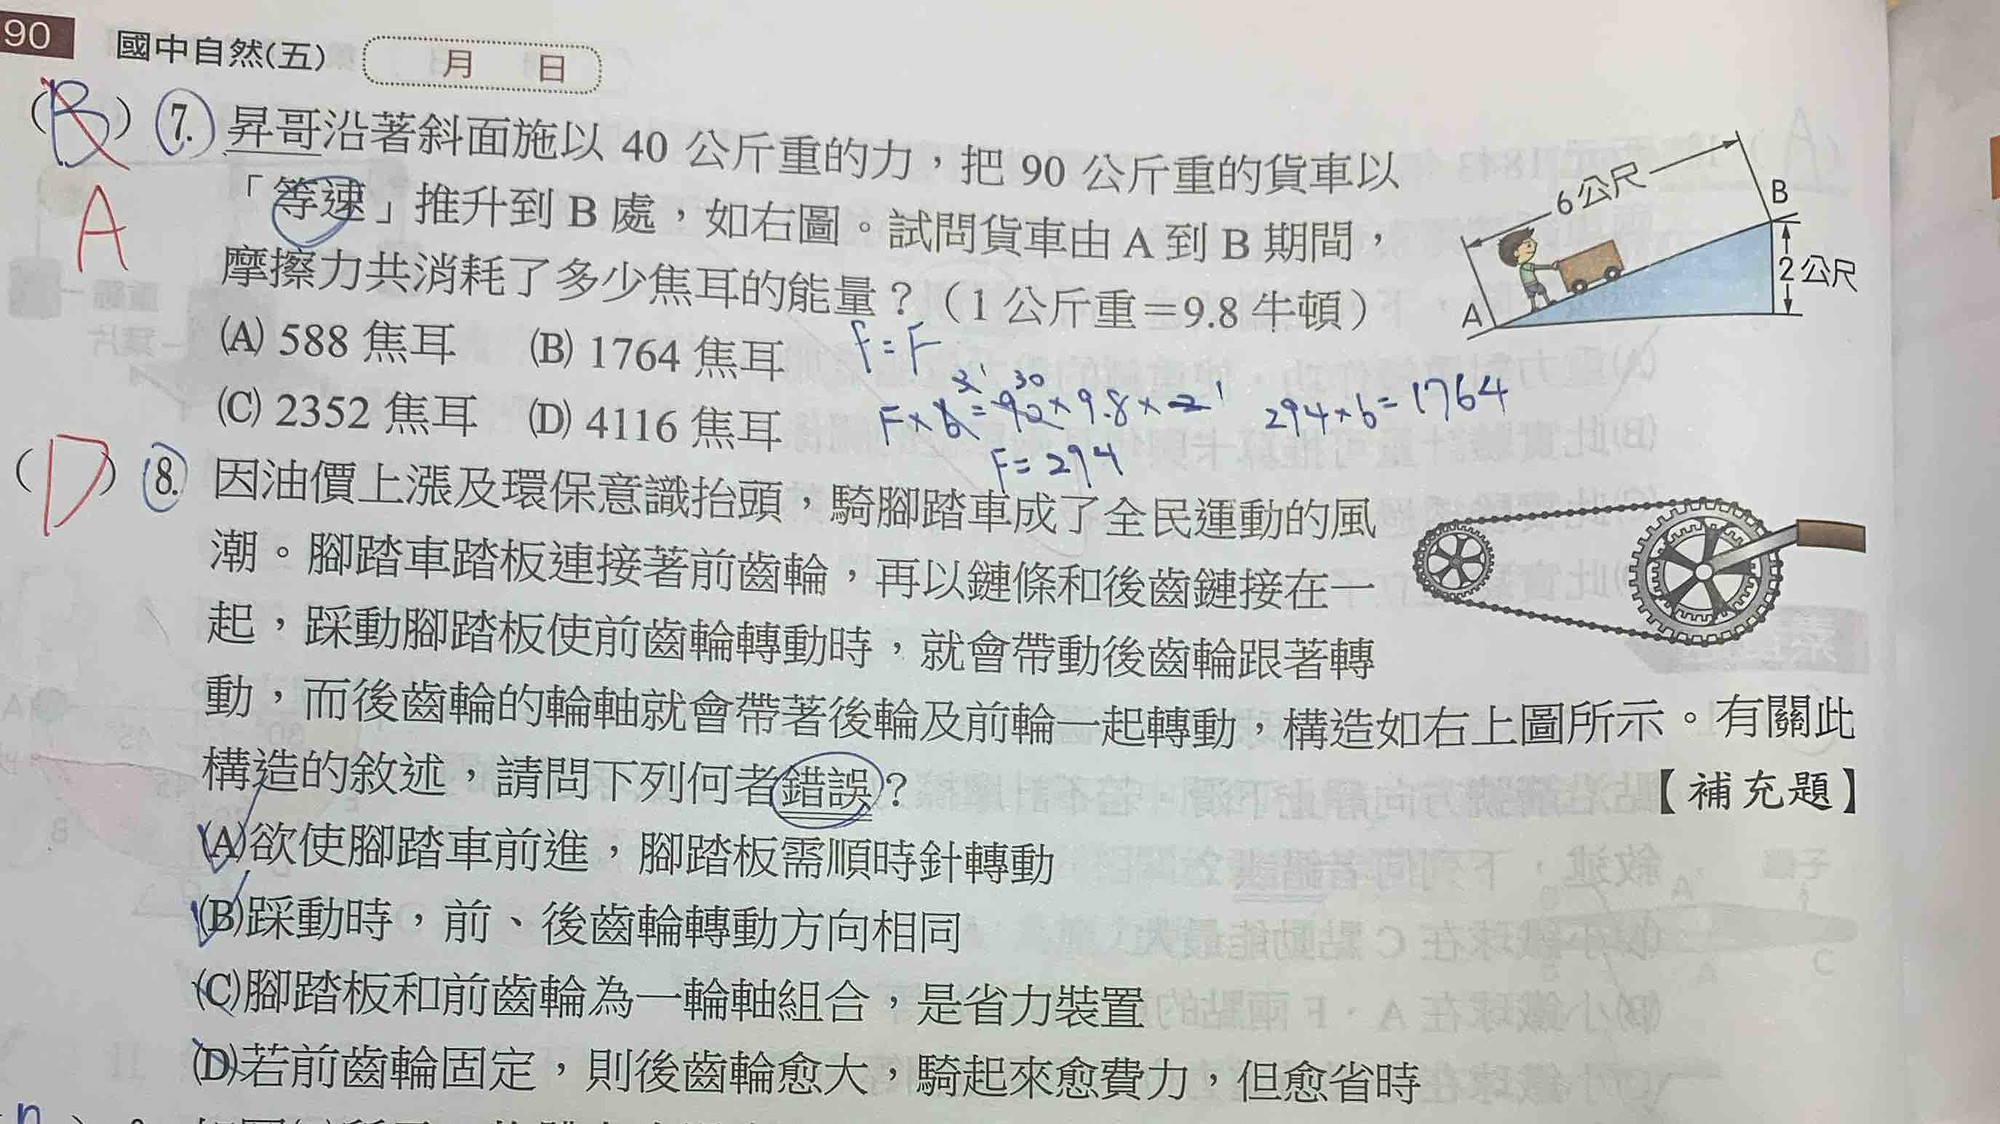 90 國中自然(五) 月 日
(B) 7. 昇哥沿著斜面施以 40 公斤重的力，把 90 公斤重的貨車以
A
「等速」推升到 B 處，如右圖。試問貨車由 A 到 B 期間，
摩擦力共消耗了多少焦耳的能量？（1 公斤重＝9.8 牛頓）
(A) 588 焦耳 (B) 1764 焦耳
(C) 2352 焦耳 (D) 4116 焦耳
6 公尺
B
2 公尺
A
f = F
F × 6 = 90 × 9.8 × 2
3 1 30 1
F = 294
294 × 6 = 1764
(D) 8. 因油價上漲及環保意識抬頭，騎腳踏車成了全民運動的風
潮。腳踏車踏板連接著前齒輪，再以鏈條和後齒鏈接在一
起，踩動腳踏板使前齒輪轉動時，就會帶動後齒輪跟著轉
動，而後齒輪的輪軸就會帶著後輪及前輪一起轉動，構造如右上圖所示。有關此
構造的敘述，請問下列何者錯誤？ 【補充題】
(A)欲使腳踏車前進，腳踏板需順時針轉動
(B)踩動時，前、後齒輪轉動方向相同
(C)腳踏板和前齒輪為一輪軸組合，是省力裝置
(D)若前齒輪固定，則後齒輪愈大，騎起來愈費力，但愈省時